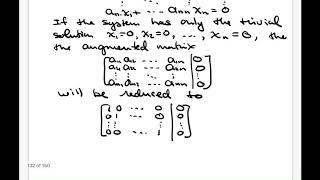 an1x1+ --- ann xn = 0
If the system has only the trivial
solution x1=0, x2=0, ---, xn=0, the
the augmented matrix
[a11 a12 --- a1n | 0
a21 a22 --- a2n | 0
an1 an2 --- ann | 0]
will be reduced to
[1 0 --- 0 | 0
0 1 --- 0 | 0
0 0 --- 1 | 0]
132 of 150